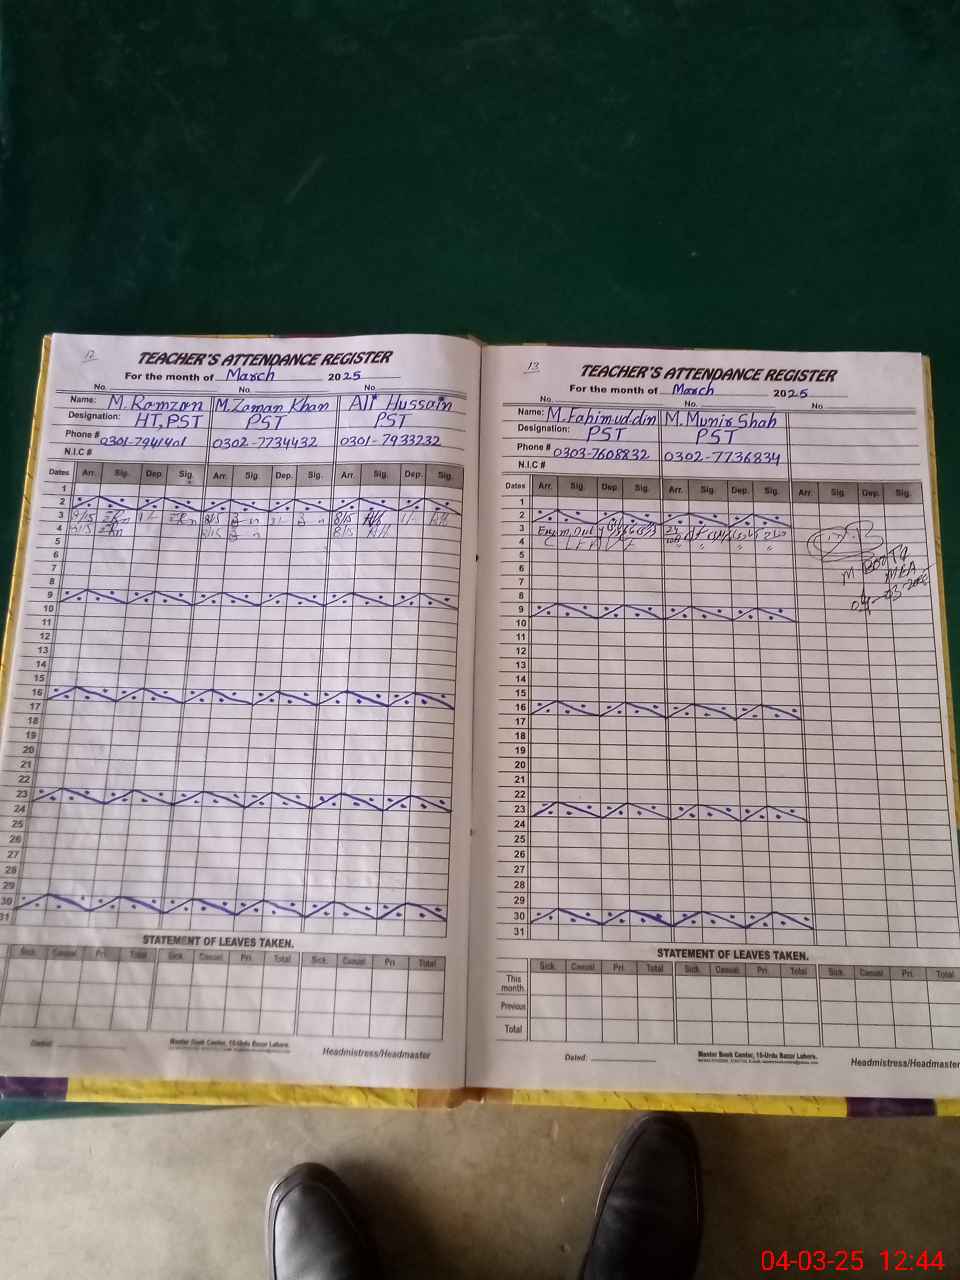 12
TEACHER'S ATTENDANCE REGISTER
For the month of March 2025
No. No. No.
Name: M. Ramzan M. Zaman Khan Ali Hussain
Designation: HT, PST PST PST
Phone # 0302-7734432 0301-7933232
N.I.C #
Dates Arr. Sig. Dep. Sig. Arr. Sig. Dep. Sig. Arr. Sig. Dep. Sig.
1
2
3 8/15 8/15 8/15
4 8/15 8/15 8/15
5
6
7
8
9
10
11
12
13
14
15
16
17
18
19
20
21
22
23
24
25
26
27
28
29
30
31
STATEMENT OF LEAVES TAKEN.
Sick. Casual. Pri. Total Sick. Casual. Pri. Total Sick. Casual. Pri. Total
Dated:
Master Book Center, 15-Urdu Bazar Lahore.
Headmistress/Headmaster
13
TEACHER'S ATTENDANCE REGISTER
For the month of March 2025
No. No. No
Name: M. Fahimuddin M. Munir Shah
Designation: PST PST
Phone # 0303-7608832 0302-7736834
N.I.C #
Dates Arr. Sig. Dep. Sig. Arr. Sig. Dep. Sig. Arr. Sig. Dep. Sig.
1
2
3
4
5
6
7
8
9
10
11
12
13
14
15
16
17
18
19
20
21
22
23
24
25
26
27
28
29
30
31
M BOOTA
MEA
04-03-2025
STATEMENT OF LEAVES TAKEN.
Sick. Casual. Pri. Total Sick. Casual. Pri. Total Sick. Casual. Pri. Total
This month
Previous
Total
Dated:
Master Book Center, 15-Urdu Bazar Lahore.
Headmistress/Headmaster
04-03-25 12:44